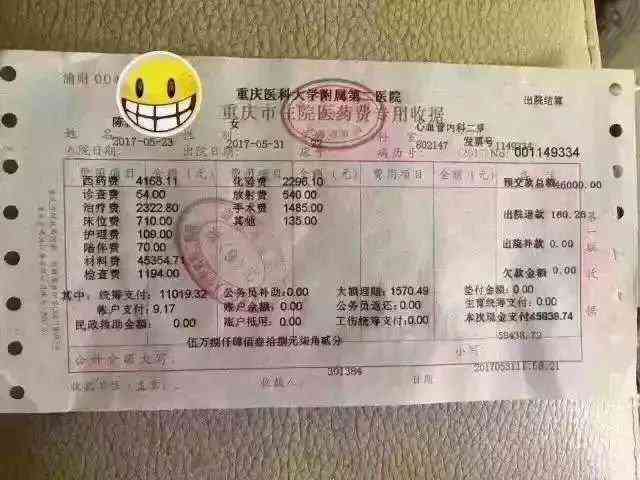 渝财 00
重庆医科大学附属第二医院
出院结算
重庆市住院医药费专用收据
陈 女 心血管内科二尽 发票号
姓名 性别 科室
2017-05-23 2017-05-31 22 602147 1149334
入院日期: 出院日期: 床号 病历号 2017 No: 001149334
费用项目 金额(元) 费用项目 金额(元) 费用项目 金额(元) 费用项目 金额(元) 预交款总额 46000.00
西药费 4168.11 化验费 2296.10
诊查费 54.00 放射费 540.00
治疗费 2322.80 手术费 1485.00 出院退款 160.26
床位费 710.00 其他 135.00
护理费 109.00 出院补款 0.00
陪伴费 70.00
材料费 45354.71
检查费 1194.00 欠款金额 0.00
其中: 统筹支付: 11019.32 公务员补助: 0.00 大额理赔: 1570.49 垫付金额: 0.00
帐户支付: 9.17 账户余额: 0.00 公务员返还: 0.00 生育统筹支付: 0.00
民政救助金额: 0.00 账户抵用: 0.00 工伤统筹支付: 0.00 本次现金支付 45839.74
伍万捌仟肆佰叁拾捌元柒角贰分 58438.72
合计金额大写: 小写
301384 20170531 11.58.21
收款单位(盖章): 收款人: 日期
第一联 收据